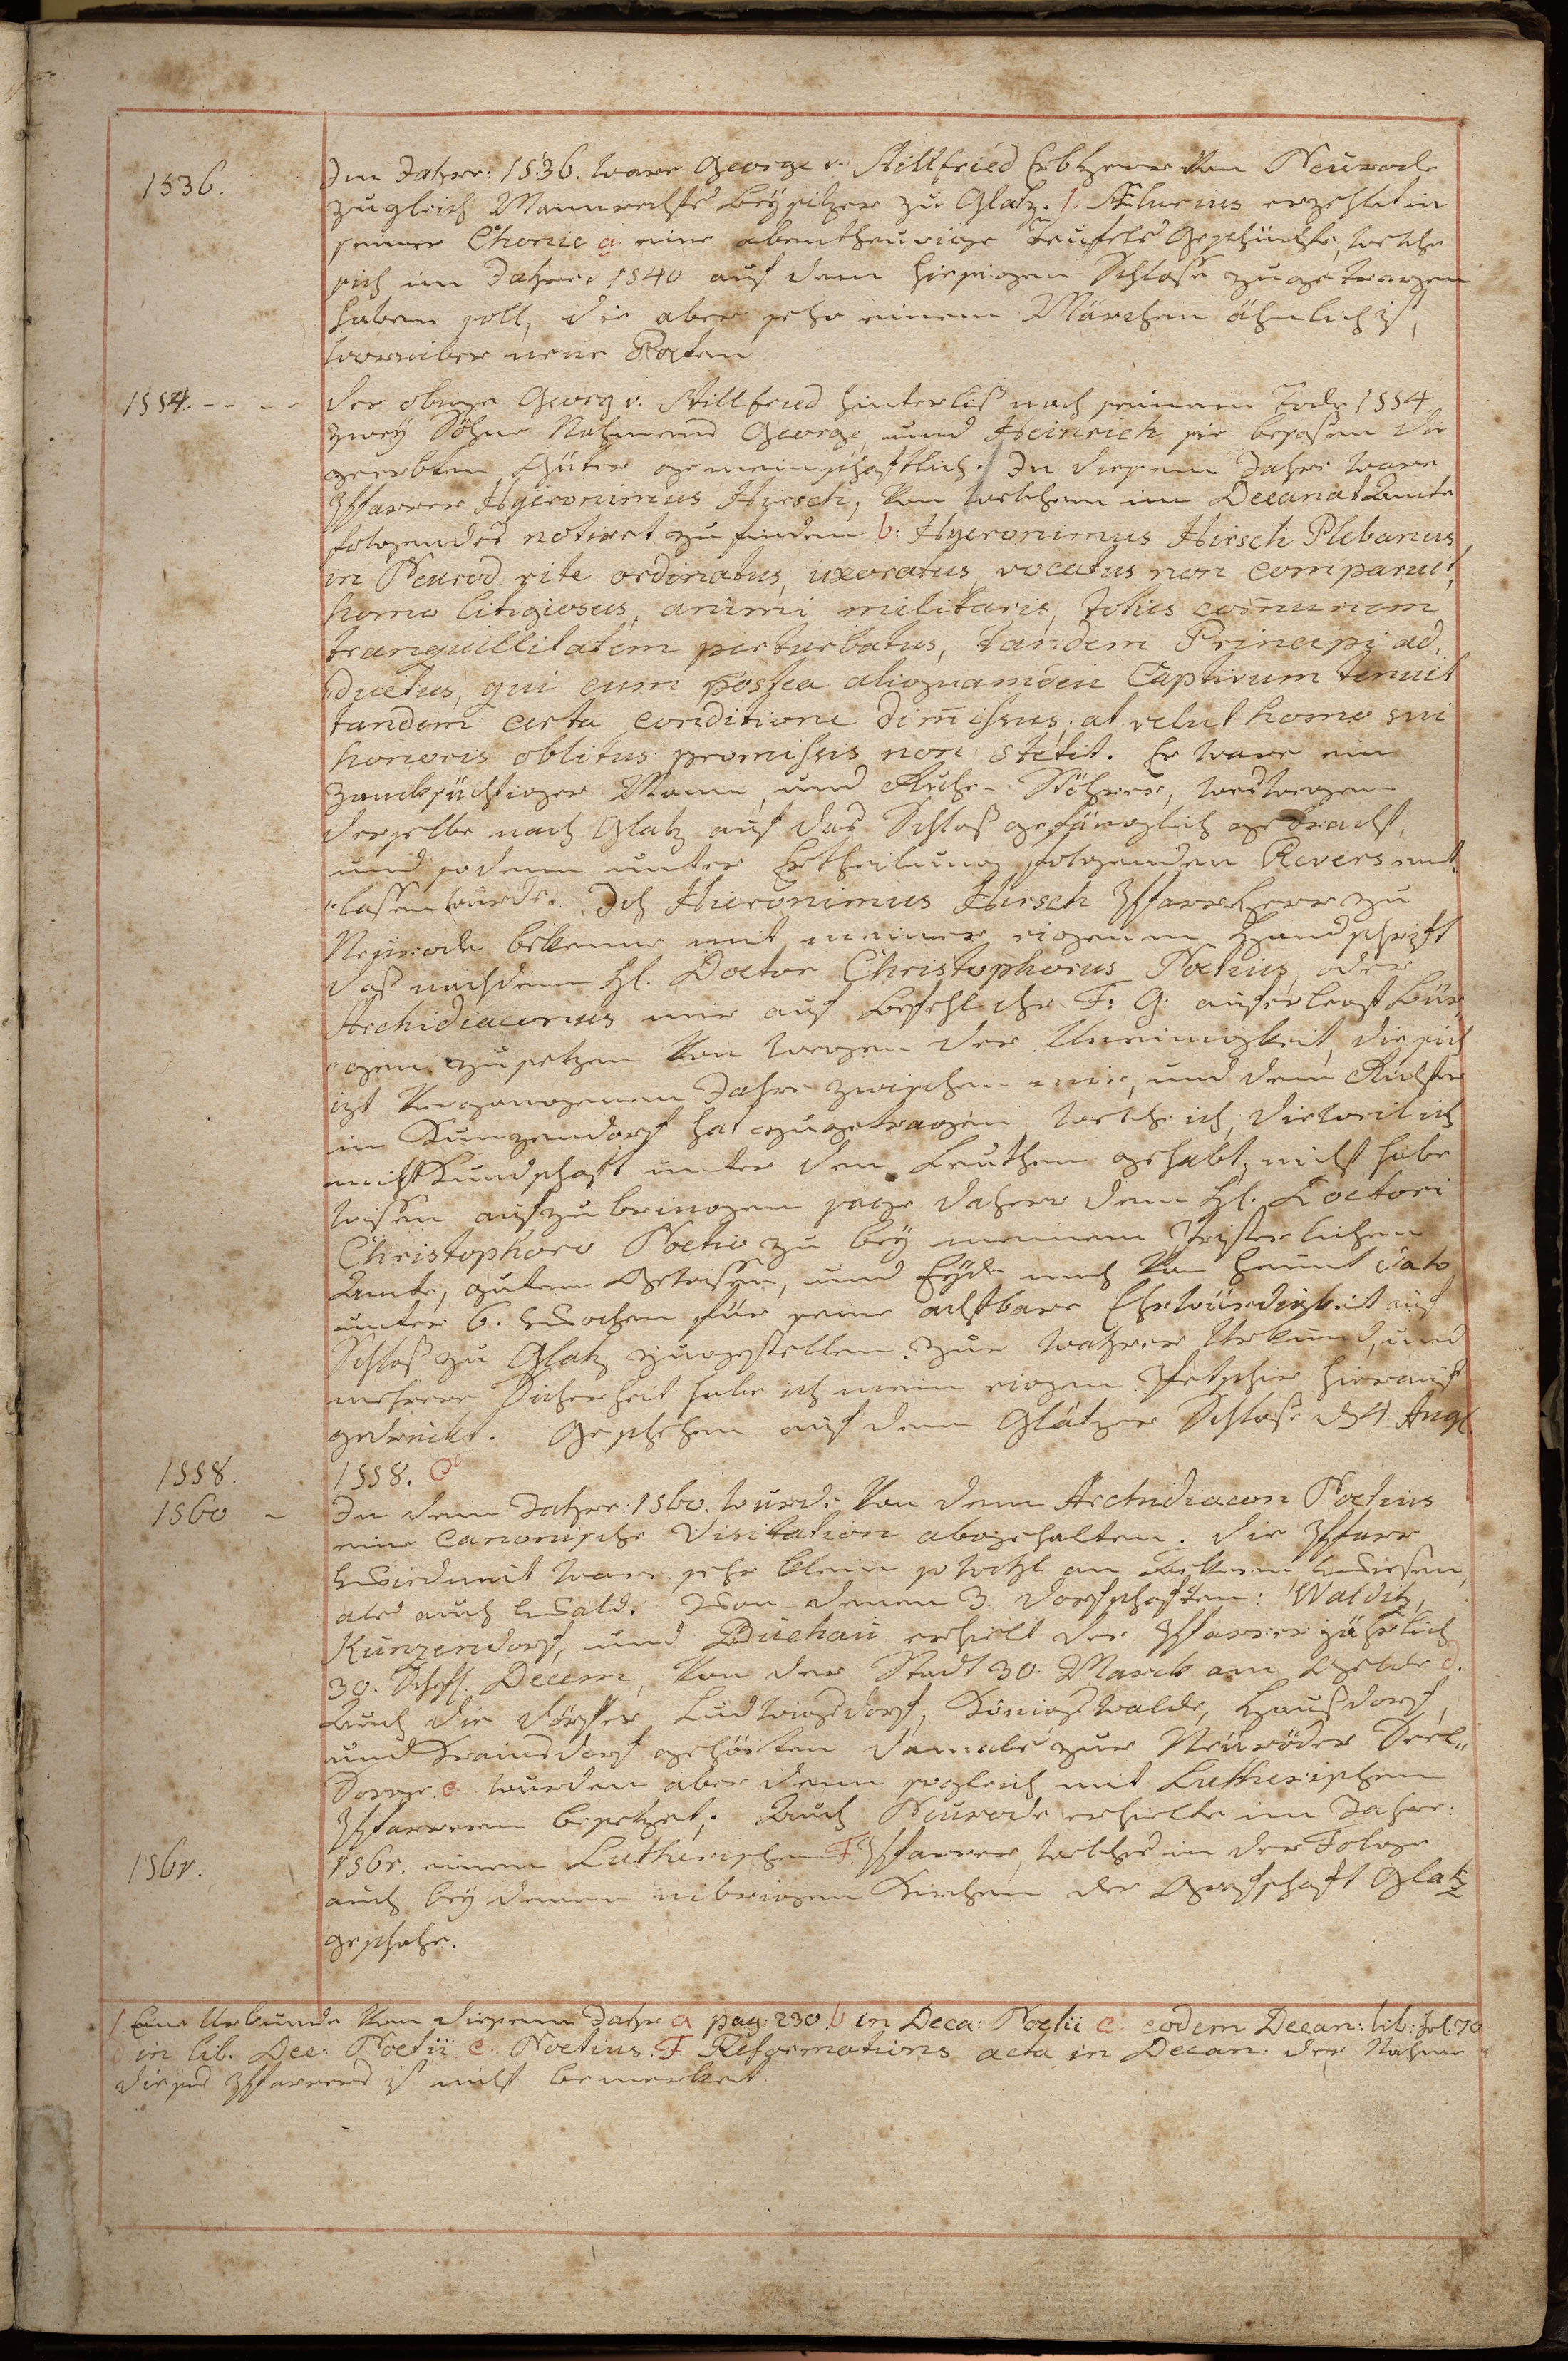 1536.
Im Jahre: 1536. ware George v. Stillfried Erbherr von Neurode
zugleich Mannrechts Beysitzer zu Glatz. /. Ælurius erzehlet in
seiner Chonic a eine abentheurige Teufels Geschichte, welche
sich im Jahre 1540 auf dem hiesigen Schlosse zugetragen
haben soll, die aber sehr einem Märchen ähnlich ist,
worüber neue
1554.
der obige Georg v. Stillfried hinterließ nach seinem Tode 1554
zwey Söhne Nahmens George, und Heinrich sie besaßen die
geerbten Güter gemeinschaftlich. / In diesem Jahre ware
Pfarrer Hyeronimus Hirsch, von welchem im Decanat Amte
folgendes notiret zu finden b: Hyeronimus Hirsch Plebanus
in Neurod. rite ordinatus, uxoratus, vocatus non comparuit,
homo litigiosus, animi militaris, totius com̄unem
tranquillitatem perturbatus, tandem Principi ad,
ductus, qui eum postea aliquamdiu Captivum tenuit
tandem certa conditione dim̄issus, at velut homo sui
honoris oblitus promissis non stetit. Er ware ein
zancksüchtiger Mann, und Ruhe- Stöhrer, weswegen
derselbe nach Glatz auf das Schloß gefänglich gebracht,
und sodenn unter Ertheilung folgenden Revers ent,
lassen wurde. Ich Hieronimus Hirsch Pfarrherr zu
Neurode bekenne mit meiner eigenen Handschrift
das nachdem H. Doctor Christophorus Noetius, oder
Archidiaconus mir auf Befehl ihr F: G: auferlegt Bür,
gen zu setzen von wegen der Uneinigkeit, die sich
izt vergangenem Jahre zwischen mir, und dem Richter
in Kunzendorf hat zugetragen, welche ich, dieweil ich
nicht Kundschaft unter den Leuthen gehabt, nicht habe
wissen aufzubringen sage daher dem H. Doctori
Christophoro Noetio zu bey meinem Priesterlichen
Amte, gutem Gewissen, und Eyde mich von heunt dato
unter 6. Wochen für seine achtbare Ehrwürdigkeit auf
Schloß zu Glatz zugestellen. Zur wahrer Urkund, und
mehrere Sicherheit habe ich mein eigen Petschir hierauf
gedruckt. Geschehen auf dem Glätzer Schlosse d. 4. Aug.
1558.
1558. c
1560
In dem Jahre: 1560. wurde von dem Archidiacon Noetius
eine canonische Visitation abgehalten. Die Pfarr
Wiedmut ware sehr klein so wohl an Aekern Wiesen,
als auch Wald. Von denen 3. Dorfschaften: Walditz,
Kunzendorf, und Buchau erhielt der Pfarrer jährlich
30. Scheff. Decem, von der Stadt 30. Marck am Gelde d.
Auch die Dörfer Ludwigsdorf, Königswalde, Haußdorf,
und Krainsdorf gehörten damals zur Neuröder Seel„
Sorge e wurden aber denn sogleich mit Lutherischen
Pfarrern besetzet. Auch Neurode erhielte im Jahre:
1561.
1561. einen Lutherischen F. Pfarrer, welches in der Folge
auch bey denen übrigen Kirchen der Grafschaft Glatz
geschahe.
/. Eine Urkunde von diesem Jahre a pag: 230. b in Deca: Noetii c eodem Decan: lib: fol: 70
d in lib. Dec: Noetii e Noetius. F Reformations acta in Decan: der Nahme
dieses Pfarrers ist nicht bemerket.